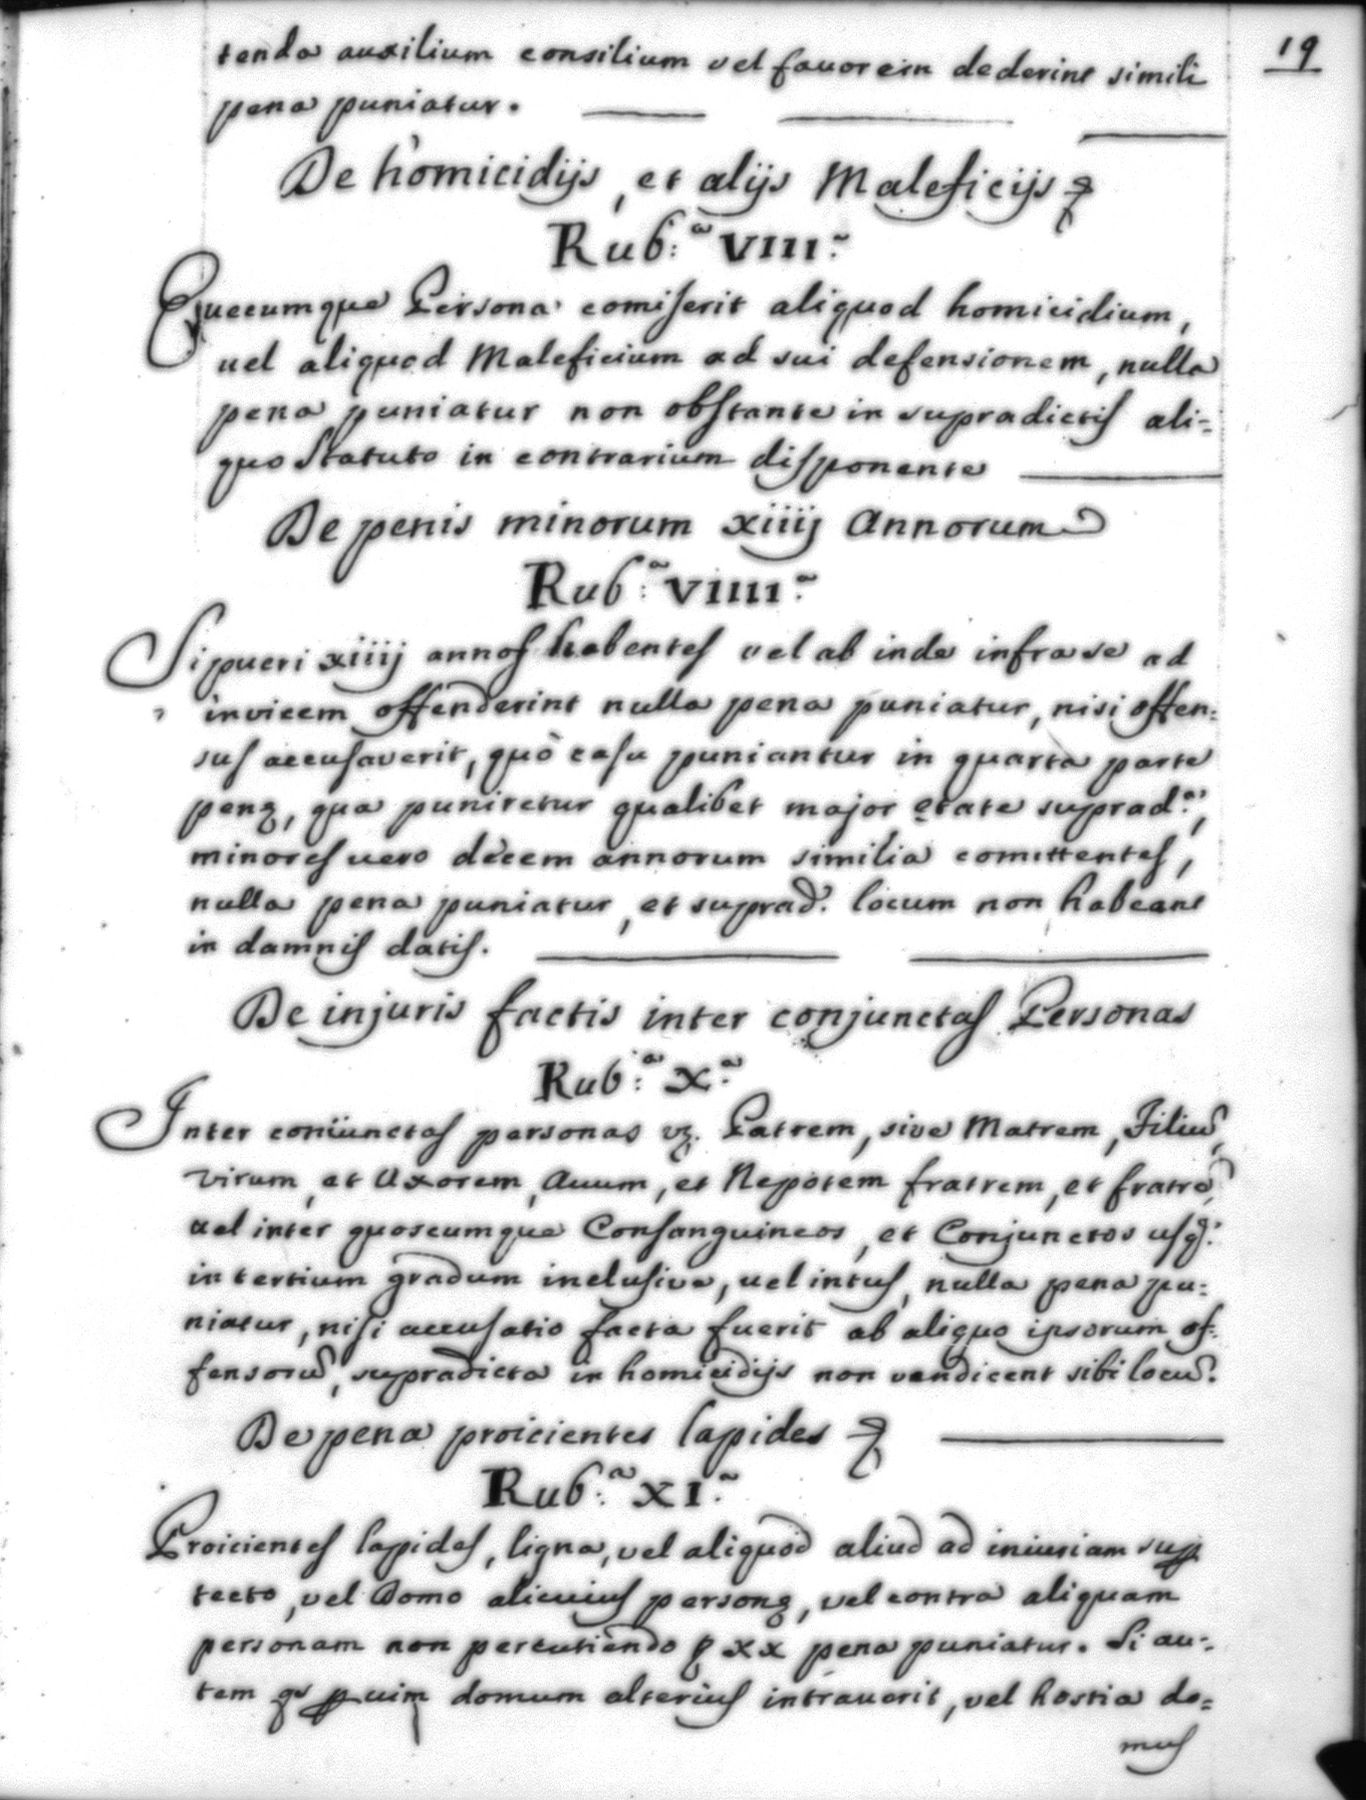 19
tenda auxilium consilium vel fauorem dederint simili
pena puniatur.
De homicidijs, et alijs Maleficijs
Rub:ª VIII.ª
Quecumque Persona comiserit aliquod homicidium,
uel aliquod Maleficium ad sui defensionem, nulla
pena puniatur non obstante in supradictis ali-
quo Statuto in contrarium disponente
De penis minorum xiiij Annorum
Rub:ª VIIII.ª
Si pueri xiiij annos habentes vel ab inde infra se ad
invicem offenderint nulla pena puniatur, nisi offen:
sus accusaverit, quò casu puniantur in quarta parte
penę, qua puniretur qualibet major ętate suprad.ª,
minores uero decem annorum similia comittentes,
nulla pena puniatur, et suprad.ª locum non habeant
in damnis datis.
De injuris factis inter conjunctas Personas
Rub:ª X.ª
Inter coniunctas personas vz. Patrem, sive Matrem, Filiũ,
virum, et Uxorem, Auum, et Nepotem fratrem, et fratrẽ,
uel inter quoscumque Consanguineos, et Conjunctos usq.
in tertium gradum inclusive, uel intus, nulla pena pu:
niatur, nisi accusatio facta fuerit ab aliquo ipsorum of:
fensorũ, supradicta in homicidijs non vendicent sibi locũ.
De pena proicientes lapides
Rub:ª XI.ª
Proicientes lapides, ligna, vel aliquod aliud ad iniuriam sup
tecto, vel Domo alicuius personę, vel contra aliquam
personam non percutiendo xx pena puniatur. Si au:
tem qs domum alterius intrauerit, vel hostia do=
mus